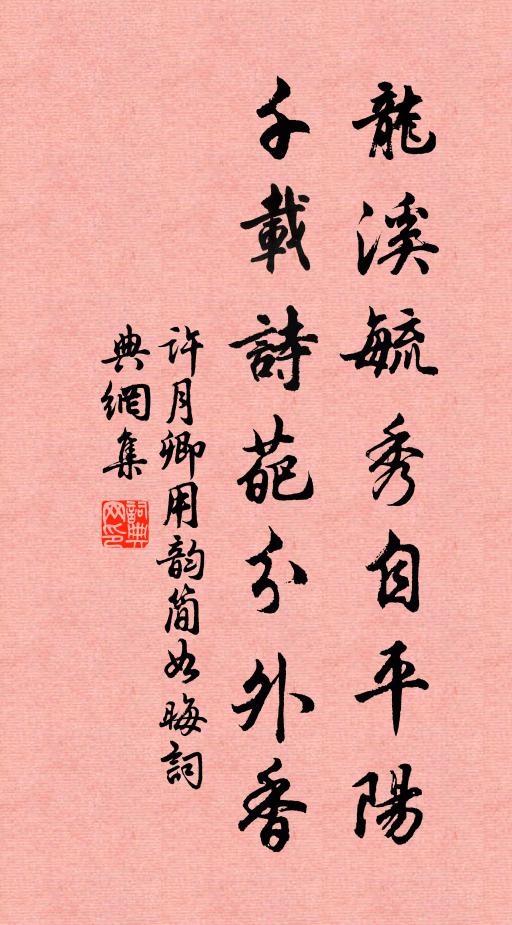 龍溪毓秀自平陽
千載詩葩分外香
许月卿用韵简如晦詞
典網集
詞典网印